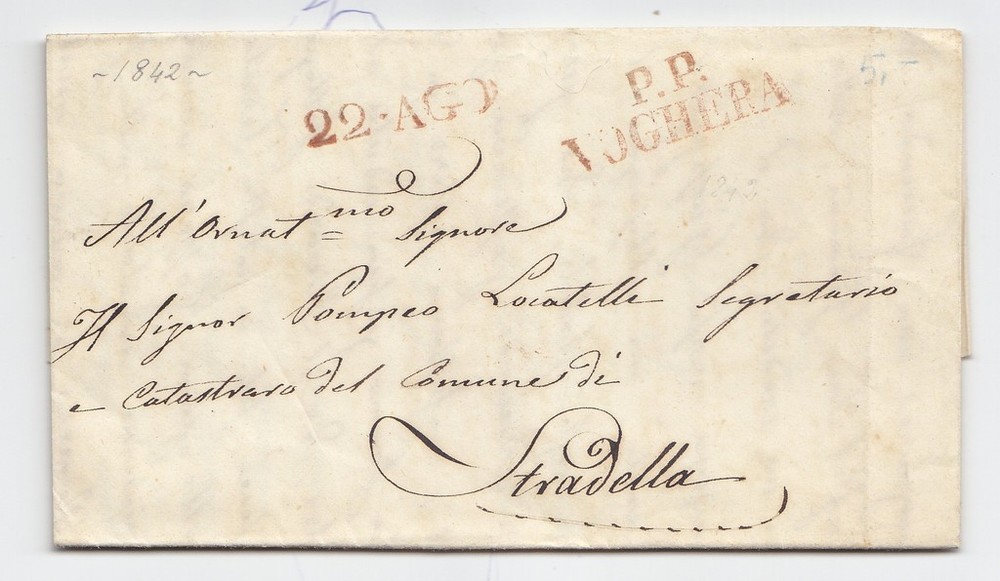 ~1842~
22·AGO
P.P.
VOGHERA
1842
All'Ornat^mo Signore
Il Signor Pompeo Locatelli Segretario
e Catastraro del Comune di
Stradella